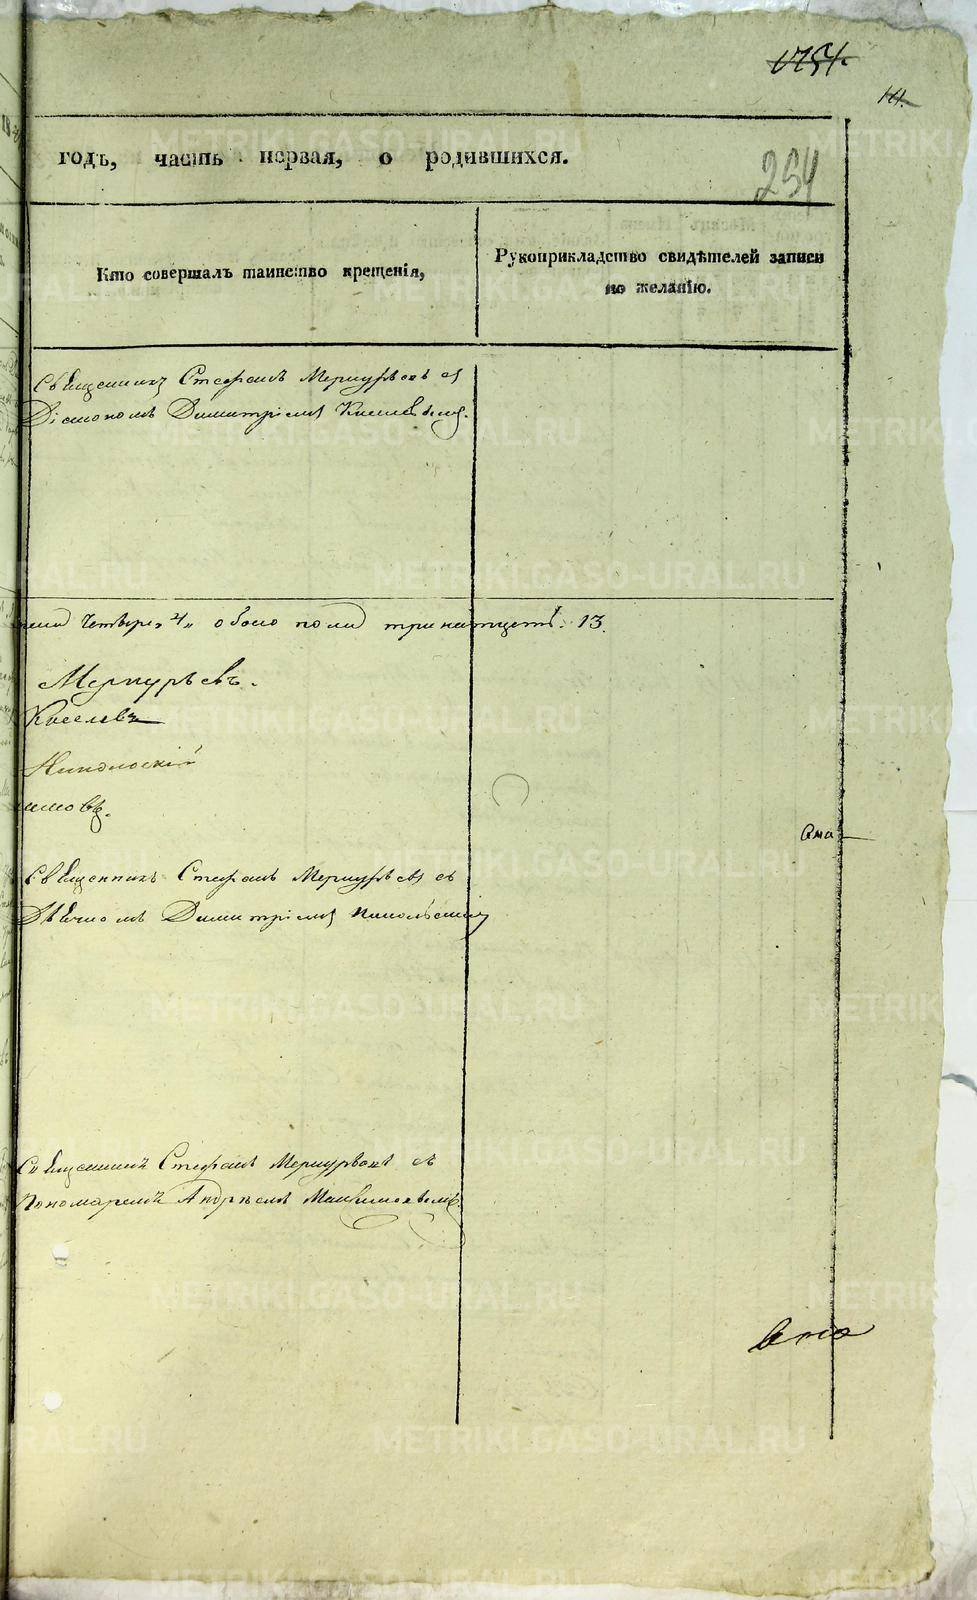 254
годъ, часть первая, о родившихся.
Кто совершалъ таинство крещенія,
Рукоприкладство свидѣтелей записи
по желанію.
Священникъ Стефанъ Меркурьевъ съ
Діакономъ Димитріемъ Киселевымъ.
Четыре "4" обоего пола тринатцеть: 13.
Меркурьевъ.
Киселевъ
Никольскій
Священникъ Стефанъ Меркурьевъ съ
Дьячкомъ Димитріемъ Никольскимъ
Священникъ Стефанъ Меркурьевъ съ
Пономаремъ Андреемъ Максимовымъ.
METRIKI.GASO-URAL.RU